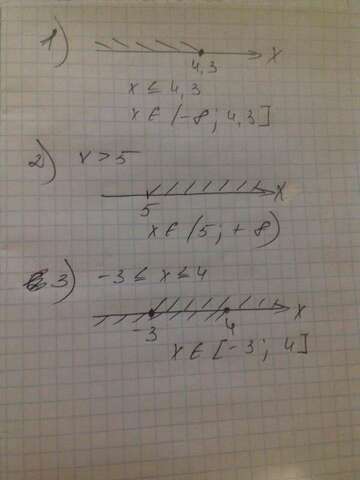 1)
x
4,3
x ≤ 4,3
x ∈ (-∞; 4,3]
2) x > 5
x
5
x ∈ (5; +∞)
3) -3 ≤ x ≤ 4
x
-3 4
x ∈ [-3; 4]